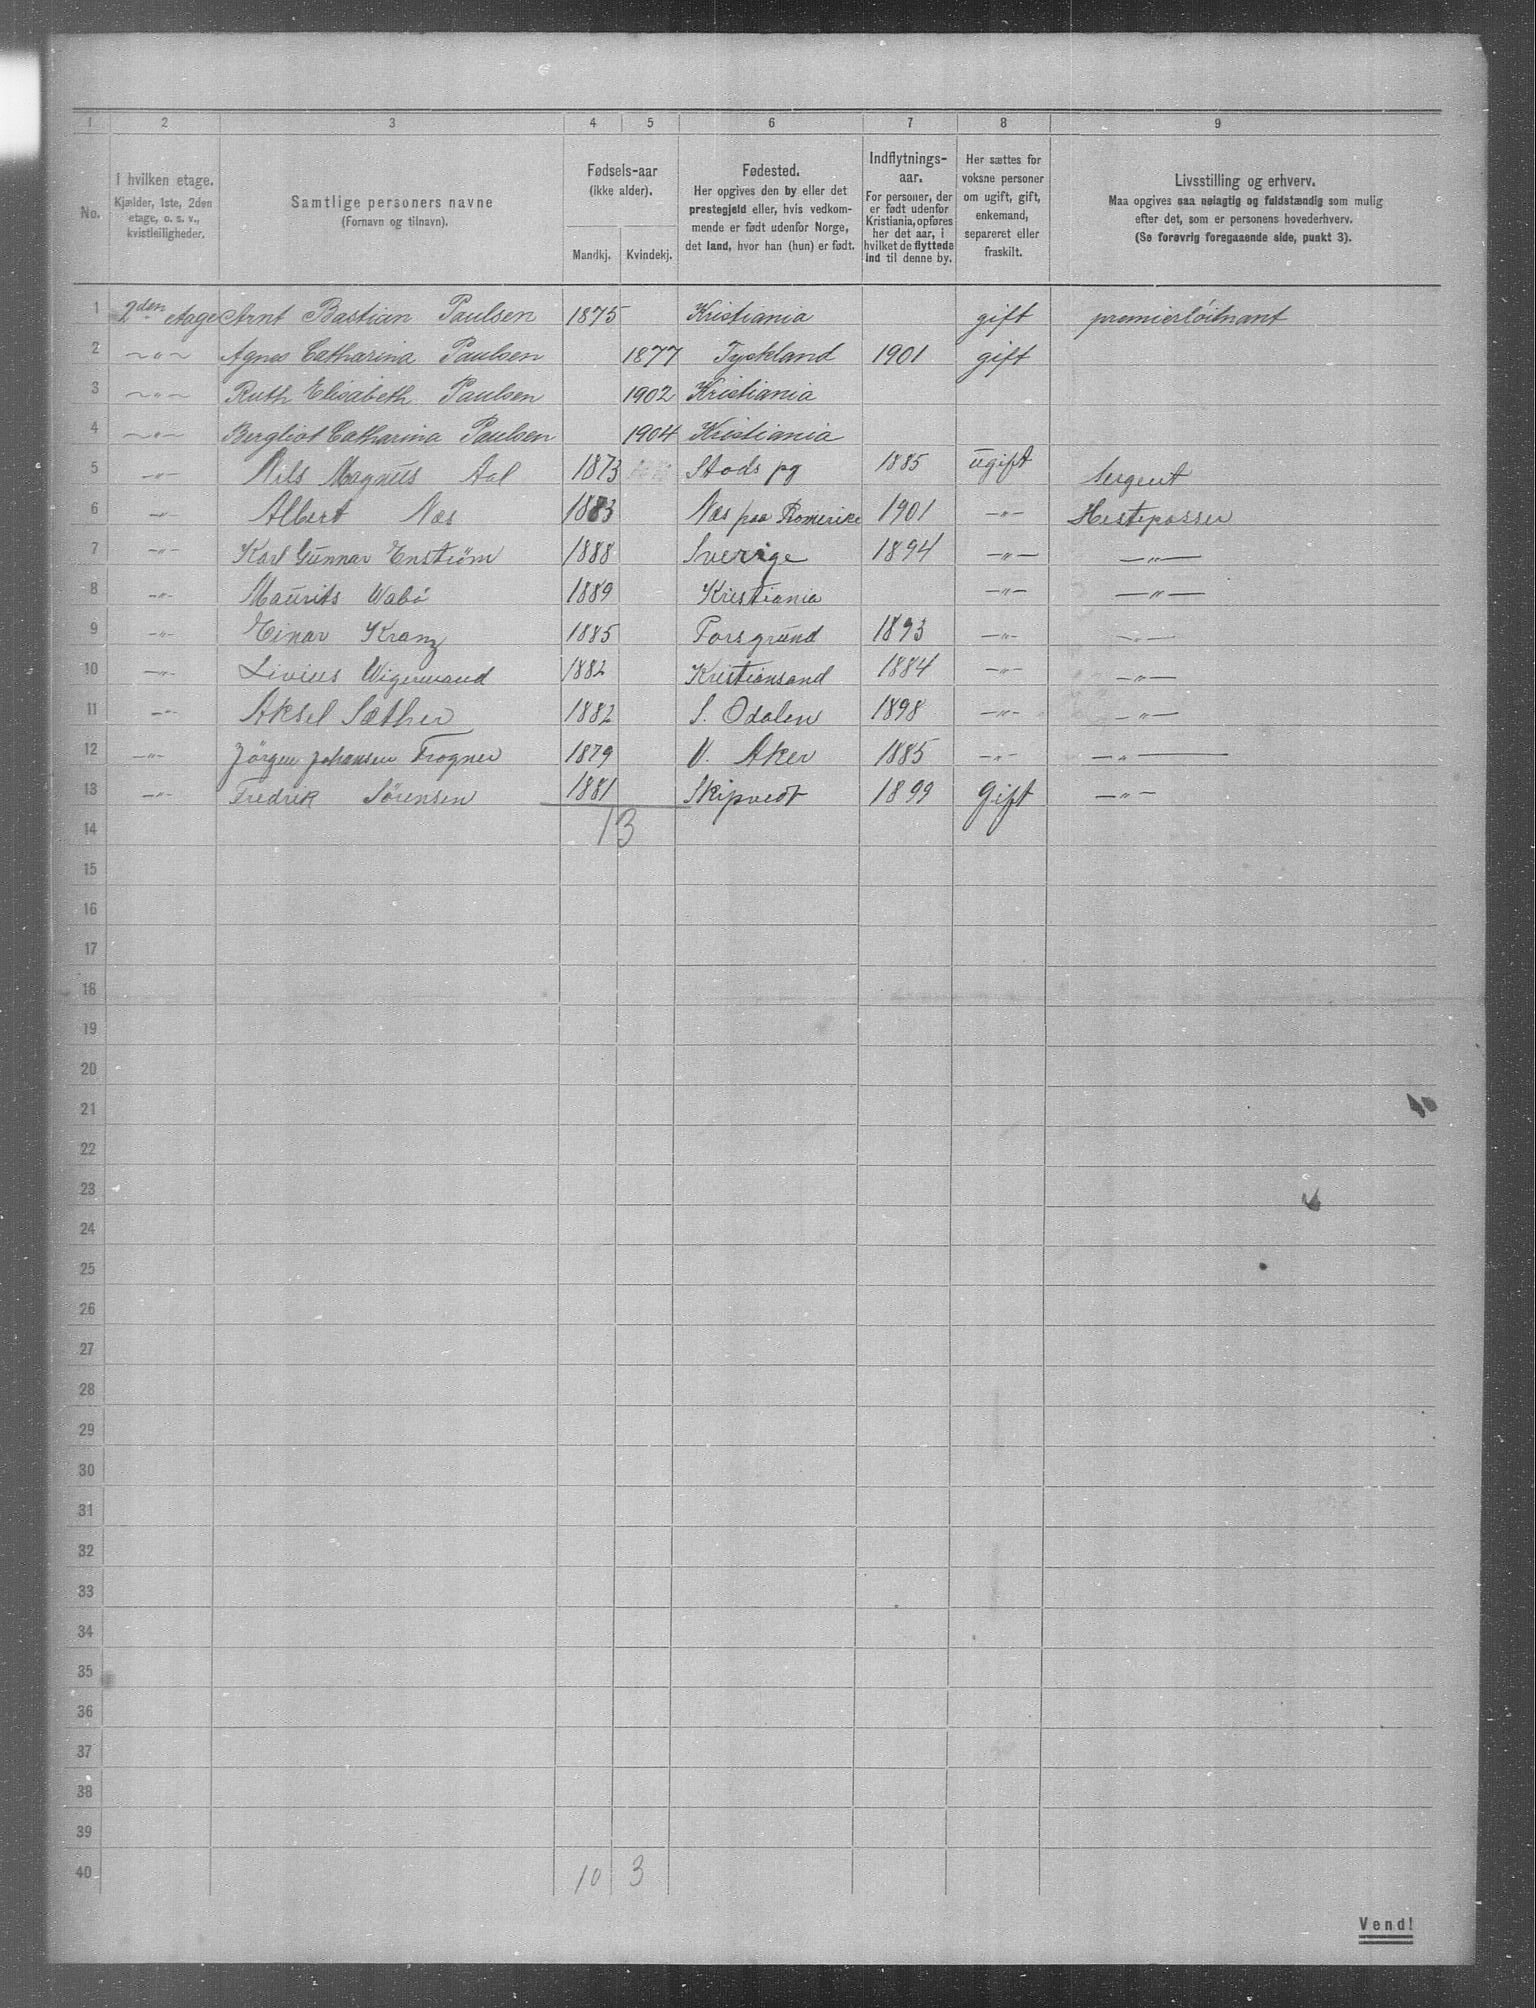 1 2 3 4 5 6 7 8 9
No.
I hvilken etage.
Kjælder, 1ste, 2den
etage, o. s. v.,
kvistleiligheder.
Samtlige personers navne
(Fornavn og tilnavn).
Fødsels-aar
(ikke alder).
Mandkj. Kvindekj.
Fødested.
Her opgives den by eller det
prestegjeld eller, hvis vedkom-
mende er født udenfor Norge,
det land, hvor han (hun) er født.
Indflytnings-
aar.
For personer, der
er født udenfor
Kristiania, opføres
her det aar, i
hvilket de flyttede
ind til denne by.
Her sættes for
voksne personer
om ugift, gift,
enkemand,
separeret eller
fraskilt.
Livsstilling og erhverv.
Maa opgives saa nøiagtig og fuldstændig som mulig
efter det, som er personens hovederhverv.
(Se forøvrig foregaaende side, punkt 3).
1 2den Etage Arnt Bastian Paulsen 1875 Kristiania gift premierløitnant
2 —"— Agnes Catharina Paulsen 1877 Tyskland 1901 gift
3 —"— Ruth Elisabeth Paulsen 1902 Kristiania
4 —"— Bergliot Catharina Paulsen 1904 Kristiania
5 —"— Nils Magnus Aal 1873 Stods pg 1885 ugift Sergent
6 —"— Albert Næs 1883 Næs paa Romerike 1901 —"— Hestepasser
7 —"— Karl Gunnar Enstrøm 1888 Sverige 1894 —"— —"—
8 —"— Maurits Wabø 1889 Kristiania —"— —"—
9 —"— Einar Kranz 1885 Porsgrund 1893 —"— —"—
10 —"— Livius Wigemvand 1882 Kristiansand 1884 —"— —"—
11 —"— Aksel Sæther 1882 S. Odalen 1898 —"— —"—
12 —"— Jörgen Johansen Frogner 1879 V. Aker 1885 —"— —"—
13 —"— Fredrik Sørensen 1881 Skipvedt 1899 Gift —"—
14 13
15
16
17
18
19
20
21
22
23
24
25
26
27
28
29
30
31
32
33
34
35
36
37
38
39
40 10 3
Vend!